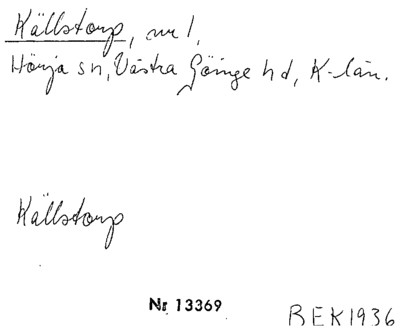 Källstorp, nr 1,
Hörja sn, Västra Göinge hd, K-län.
Källstorp
Nr 13369
BEK1936